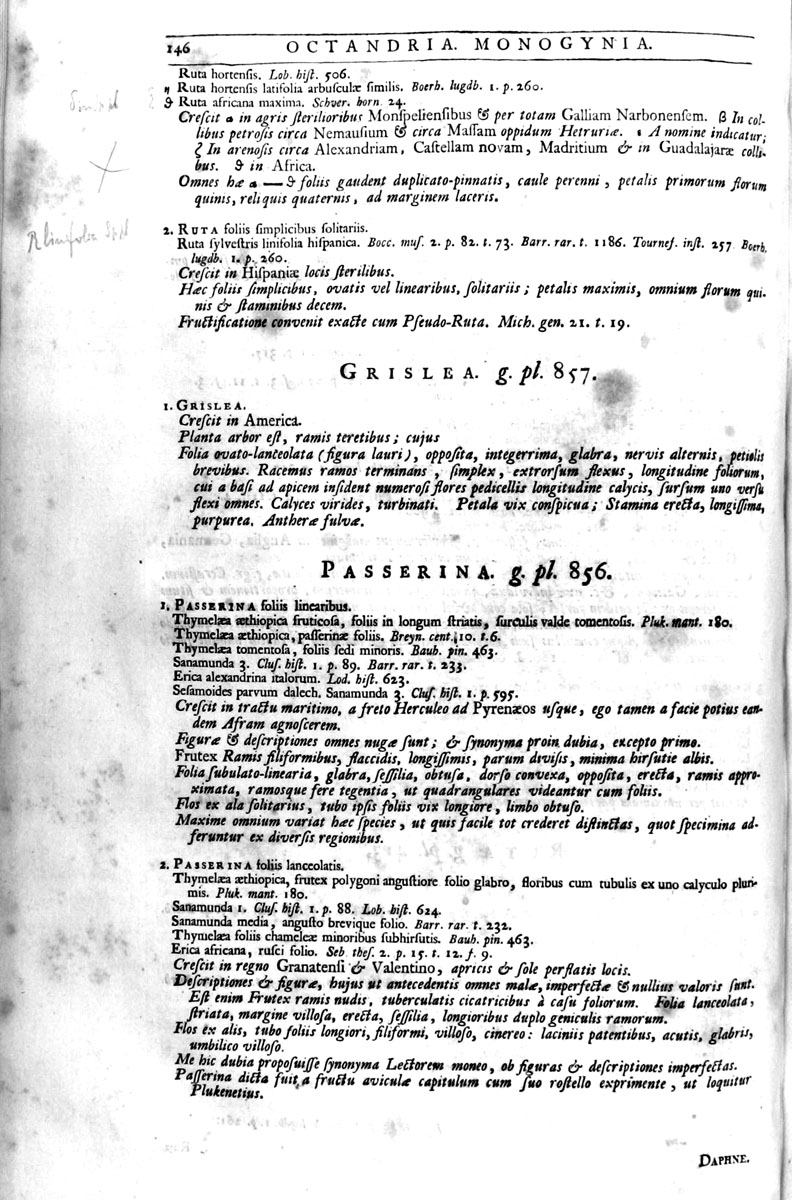 146 OCTANDRIA. MONOGYNIA.
Ruta hortenſis. Lob. hiſt. 506.
η Ruta hortenſis latifolia arbuſculæ ſimilis. Boerh. lugdb. 1. p. 260.
ϑ Ruta africana maxima. Schver. horn. 24.
Creſcit α in agris ſterilioribus Monſpelienſibus & per totam Galliam Narbonenſem. β In col-
libus petroſis circa Nemauſium & circa Maſſam oppidum Hetruriæ. ε A nomine indicatur;
ζ In arenoſis circa Alexandriam, Caſtellam novam, Madritium & in Guadalajaræ colli-
bus. ϑ in Africa.
Omnes hæ α — ϑ foliis gaudent duplicato-pinnatis, caule perenni, petalis primorum florum
quinis, reliquis quaternis, ad marginem laceris.
2. RUTA foliis ſimplicibus ſolitariis.
Ruta ſylveſtris linifolia hiſpanica. Bocc. muſ. 2. p. 82. t. 73. Barr. rar. t. 1186. Tournef. inſt. 257 Boerh.
lugdb. 1. p. 260.
Creſcit in Hiſpaniæ locis ſterilibus.
Hæc foliis ſimplicibus, ovatis vel linearibus, ſolitariis; petalis maximis, omnium florum qui-
nis & ſtaminibus decem.
Fructificatione convenit exacte cum Pſeudo-Ruta. Mich. gen. 21. t. 19.
GRISLEA. g. pl. 857.
1. GRISLEA.
Creſcit in America.
Planta arbor eſt, ramis teretibus; cujus
Folia ovato-lanceolata (figura lauri), oppoſita, integerrima, glabra, nervis alternis, petiolis
brevibus. Racemus ramos terminans, ſimplex, extrorſum flexus, longitudine foliorum,
cui a baſi ad apicem inſident numeroſi flores pedicellis longitudine calycis, ſurſum uno verſu
flexi omnes. Calyces virides, turbinati. Petala vix conſpicua; Stamina erecta, longiſſima,
purpurea. Antheræ fulvæ.
PASSERINA. g. pl. 856.
1. PASSERINA foliis linearibus.
Thymelæa æthiopica fruticoſa, foliis in longum ſtriatis, ſurculis valde tomentoſis. Pluk. mant. 180.
Thymelæa æthiopica, paſſerinæ foliis. Breyn. cent. 10. t. 6.
Thymelæa tomentoſa, foliis ſedi minoris. Bauh. pin. 463.
Sanamunda 3. Cluſ. hiſt. 1. p. 89. Barr. rar. t. 233.
Erica alexandrina italorum. Lod. hiſt. 623.
Seſamoides parvum dalech. Sanamunda 3. Cluſ. hiſt. 1. p. 595.
Creſcit in tractu maritimo, a freto Herculeo ad Pyrenæos uſque, ego tamen a facie potius ean-
dem Afram agnoſcerem.
Figuræ & deſcriptiones omnes nugæ ſunt; & ſynonyma proin dubia, excepto primo.
Frutex Ramis filiformibus, flaccidis, longiſſimis, parum diviſis, minima hirſutie albis.
Folia ſubulato-linearia, glabra, ſeſſilia, obtuſa, dorſo convexa, oppoſita, erecta, ramis appro-
ximata, ramosque fere tegentia, ut quadrangulares videantur cum foliis.
Flos ex ala ſolitarius, tubo ipſis foliis vix longiore, limbo obtuſo.
Maxime omnium variat hæc ſpecies, ut quis facile tot crederet diſtinctas, quot ſpecimina ad-
feruntur ex diverſis regionibus.
2. PASSERINA foliis lanceolatis.
Thymelæa æthiopica, frutex polygoni anguſtiore folio glabro, floribus cum tubulis ex uno calyculo pluri-
mis. Pluk. mant. 180.
Sanamunda 1. Cluſ. hiſt. 1. p. 88. Lob. hiſt. 624.
Sanamunda media, anguſto brevique folio. Barr. rar. t. 232.
Thymelæa foliis chameleæ minoribus ſubhirſutis. Bauh. pin. 463.
Erica africana, ruſci folio. Seb theſ. 2. p. 15. t. 12. f. 9.
Creſcit in regno Granatenſi & Valentino, apricis & ſole perflatis locis.
Deſcriptiones & figuræ, hujus ut antecedentis omnes malæ, imperfectæ & nullius valoris ſunt.
Eſt enim Frutex ramis nudis, tuberculatis cicatricibus à caſu foliorum. Folia lanceolata,
ſtriata, margine villoſa, erecta, ſeſſilia, longioribus duplo geniculis ramorum.
Flos ex alis, tubo foliis longiori, filiformi, villoſo, cinereo: laciniis patentibus, acutis, glabris,
umbilico villoſo.
Me hic dubia propoſuiſſe ſynonyma Lectorem moneo, ob figuras & deſcriptiones imperfectas.
Paſſerina dicta fuit a fructu aviculæ capitulum cum ſuo roſtello exprimente, ut loquitur
Plukenetius.
DAPHNE.